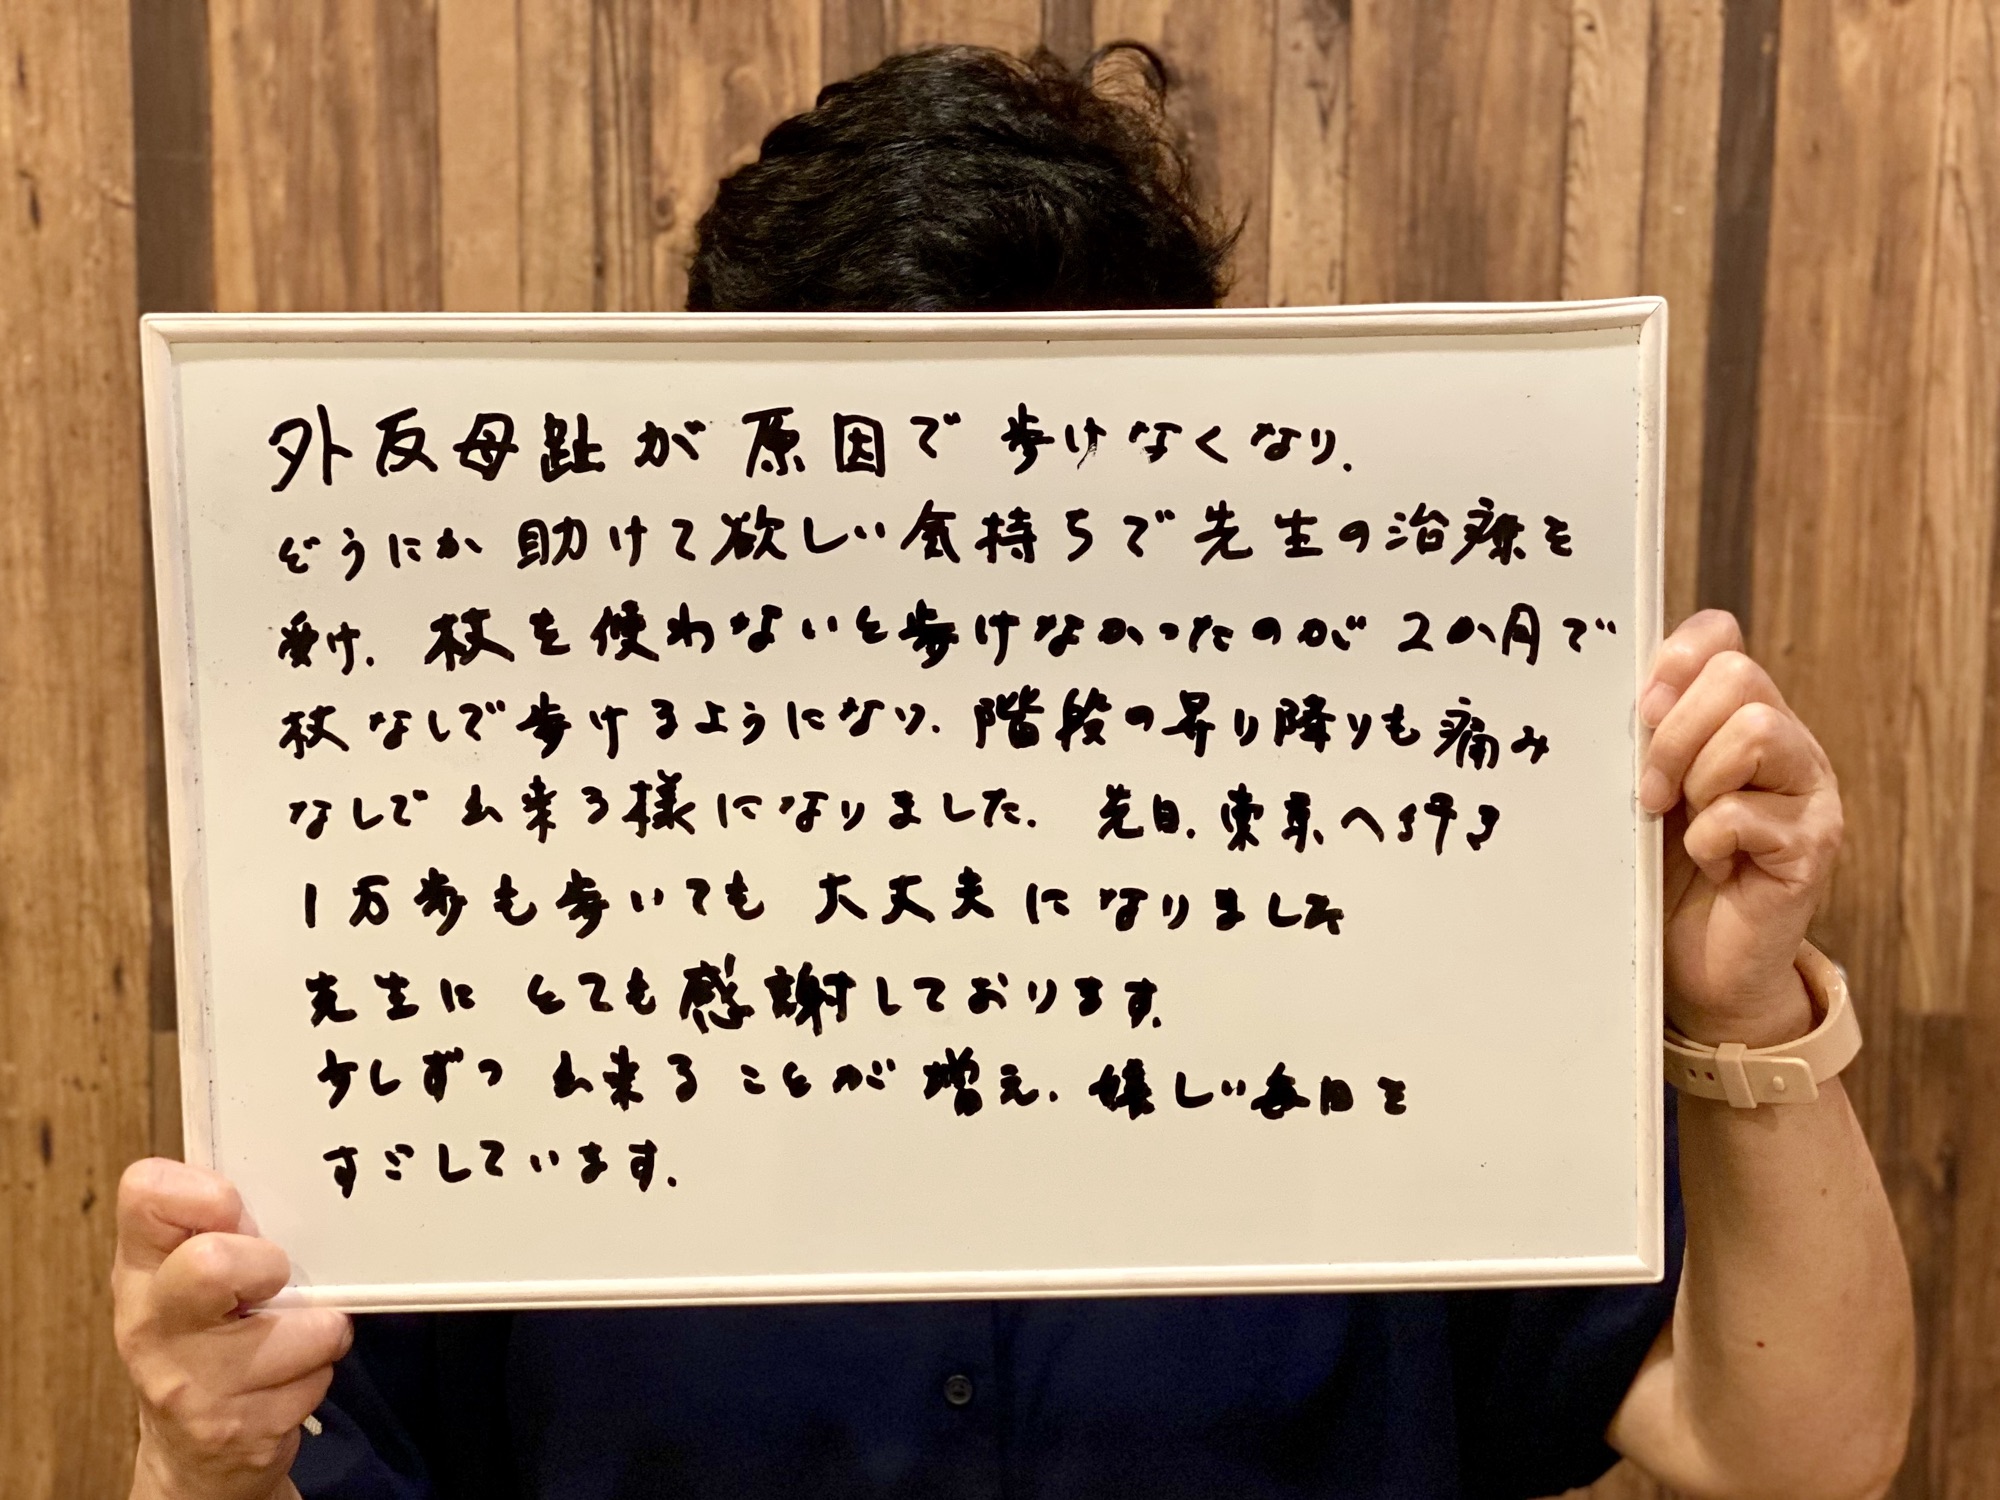 外反母趾が原因で歩けなくなり.
どうにか助けて欲しい気持ちで先生の治療を
受け.杖を使わないと歩けなかったのが2か月で
杖なしで歩けるようになり.階段の昇り降りも痛み
なしで出来る様になりました.先日.東京へ行き
1万歩も歩いても大丈夫になりました
先生にとても感謝しております.
少しずつ出来ることが増え.嬉しい毎日を
すごしています.